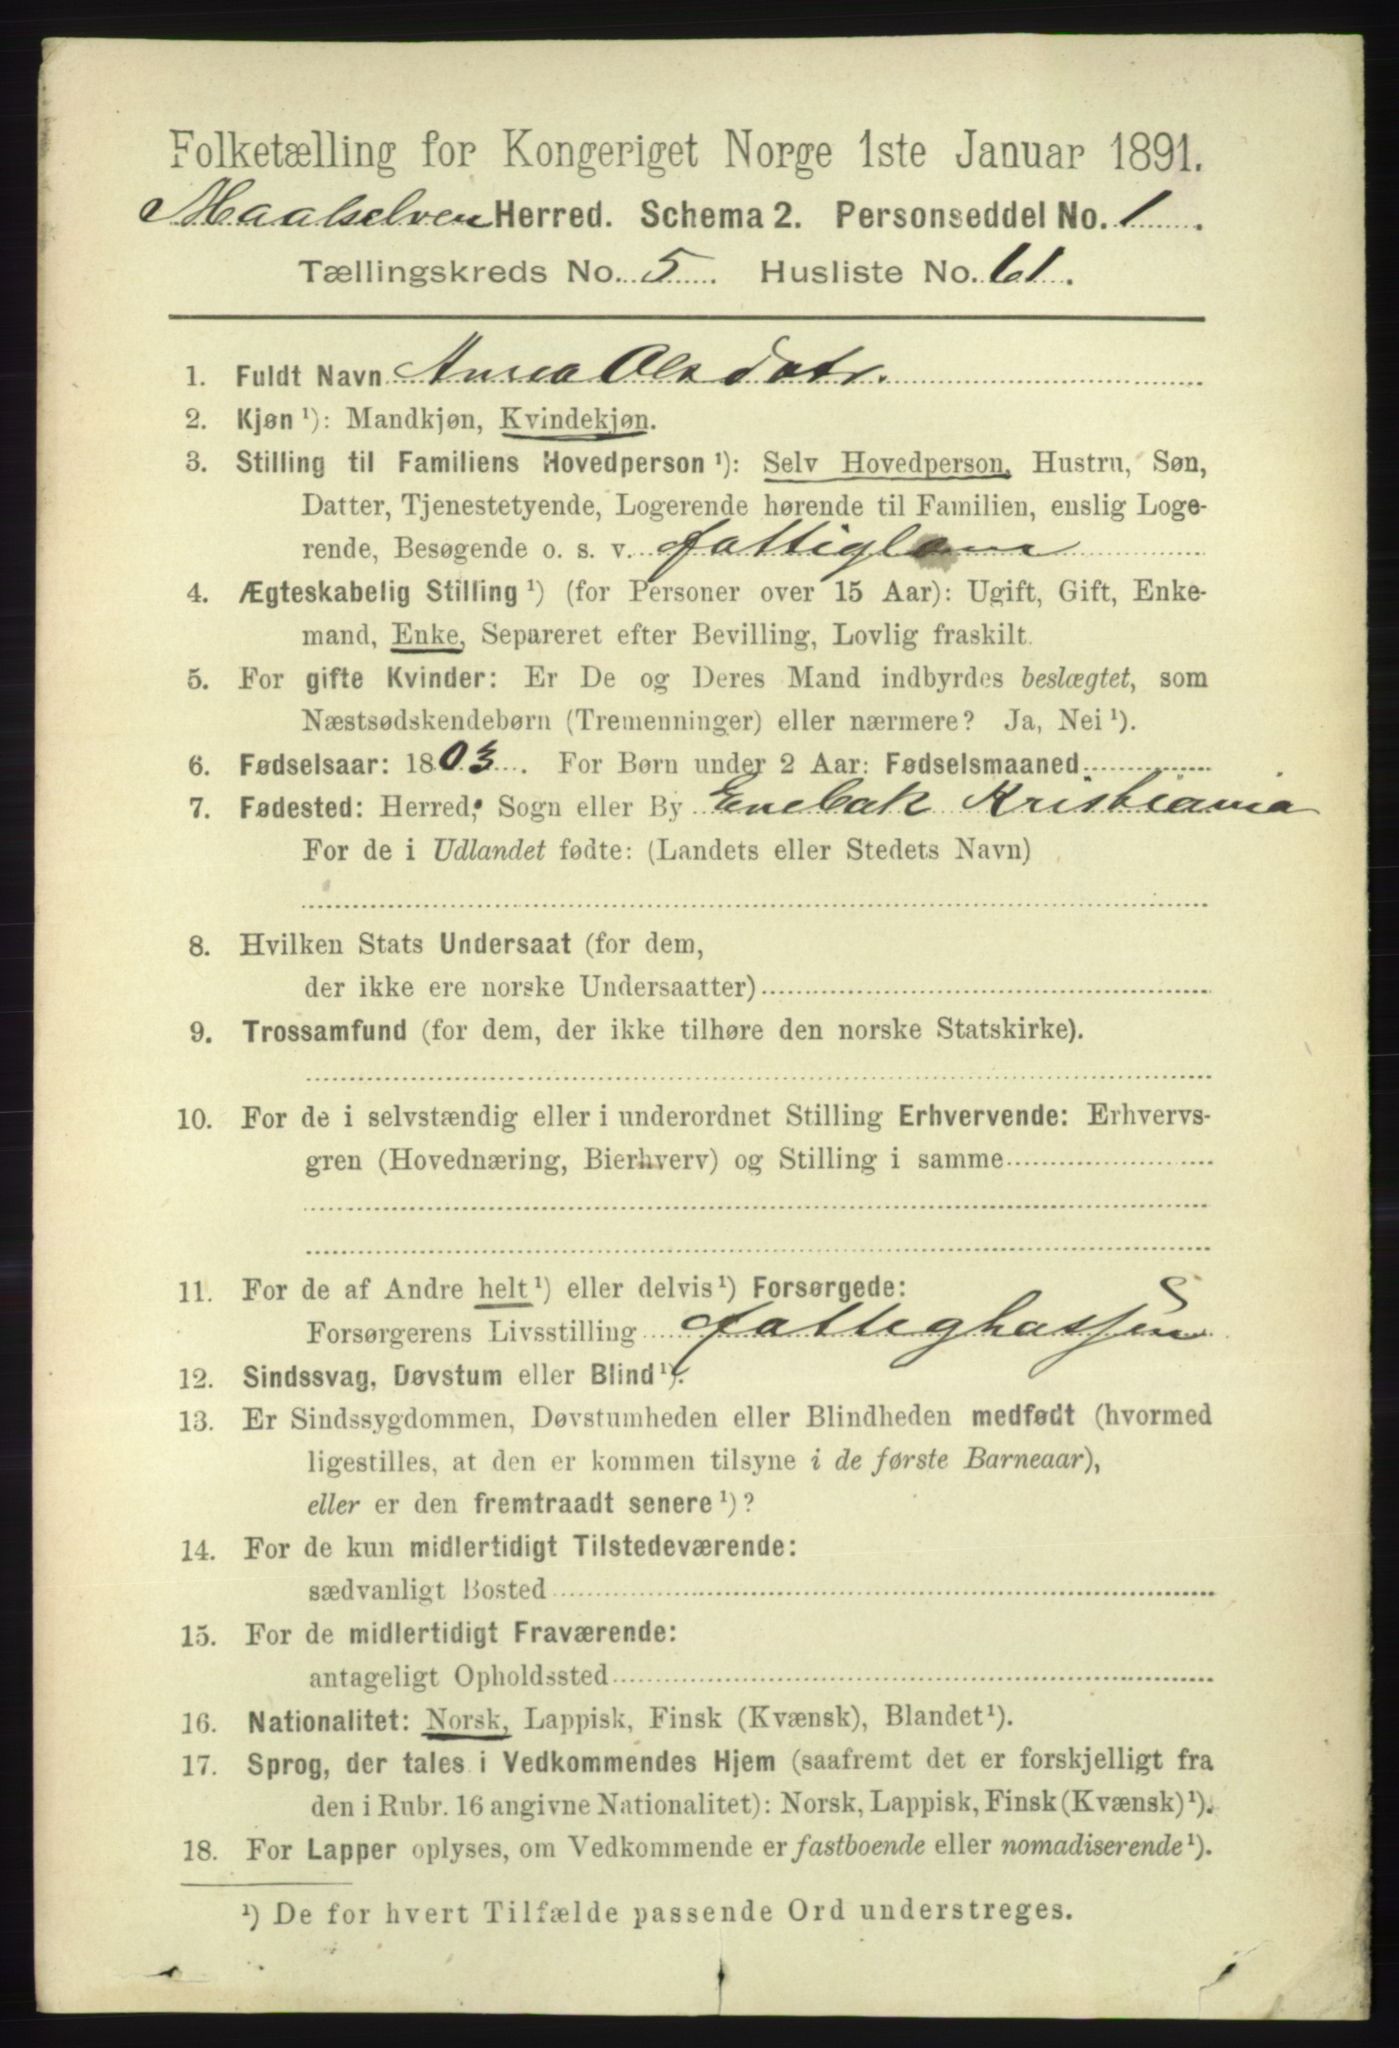 Folketælling for Kongeriget Norge 1ste Januar 1891.
Maalselven Herred. Schema 2. Personseddel No. 1.
Tællingskreds No. 5. Husliste No. 61.
1. Fuldt Navn Anna Olsdatr.
2. Kjøn ¹): Mandkjøn, Kvindekjøn.
3. Stilling til Familiens Hovedperson ¹): Selv Hovedperson, Hustru, Søn,
Datter, Tjenestetyende, Logerende hørende til Familien, enslig Loge-
rende, Besøgende o. s. v. fattiglem
4. Ægteskabelig Stilling ¹) (for Personer over 15 Aar): Ugift, Gift, Enke-
mand, Enke, Separeret efter Bevilling, Lovlig fraskilt.
5. For gifte Kvinder: Er De og Deres Mand indbyrdes beslægtet, som
Næstsødskendebørn (Tremenninger) eller nærmere? Ja, Nei ¹).
6. Fødselsaar: 1803. For Børn under 2 Aar: Fødselsmaaned
7. Fødested: Herred, Sogn eller By Enebak Kristiania
For de i Udlandet fødte: (Landets eller Stedets Navn)
8. Hvilken Stats Undersaat (for dem,
der ikke ere norske Undersaatter)
9. Trossamfund (for dem, der ikke tilhøre den norske Statskirke).
10. For de i selvstændig eller i underordnet Stilling Erhvervende: Erhvervs-
gren (Hovednæring, Bierhverv) og Stilling i samme
11. For de af Andre helt ¹) eller delvis ¹) Forsørgede:
Forsørgerens Livsstilling
12. Sindssvag, Døvstum eller Blind ¹).
13. Er Sindssygdommen, Døvstumheden eller Blindheden medfødt (hvormed
ligestilles, at den er kommen tilsyne i de første Barneaar),
eller er den fremtraadt senere ¹)?
14. For de kun midlertidigt Tilstedeværende:
sædvanligt Bosted
15. For de midlertidigt Fraværende:
antageligt Opholdssted
16. Nationalitet: Norsk, Lappisk, Finsk (Kvænsk), Blandet ¹).
17. Sprog, der tales i Vedkommendes Hjem (saafremt det er forskjelligt fra
den i Rubr. 16 angivne Nationalitet): Norsk, Lappisk, Finsk (Kvænsk) ¹).
18. For Lapper oplyses, om Vedkommende er fastboende eller nomadiserende ¹).
¹) De for hvert Tilfælde passende Ord understreges.